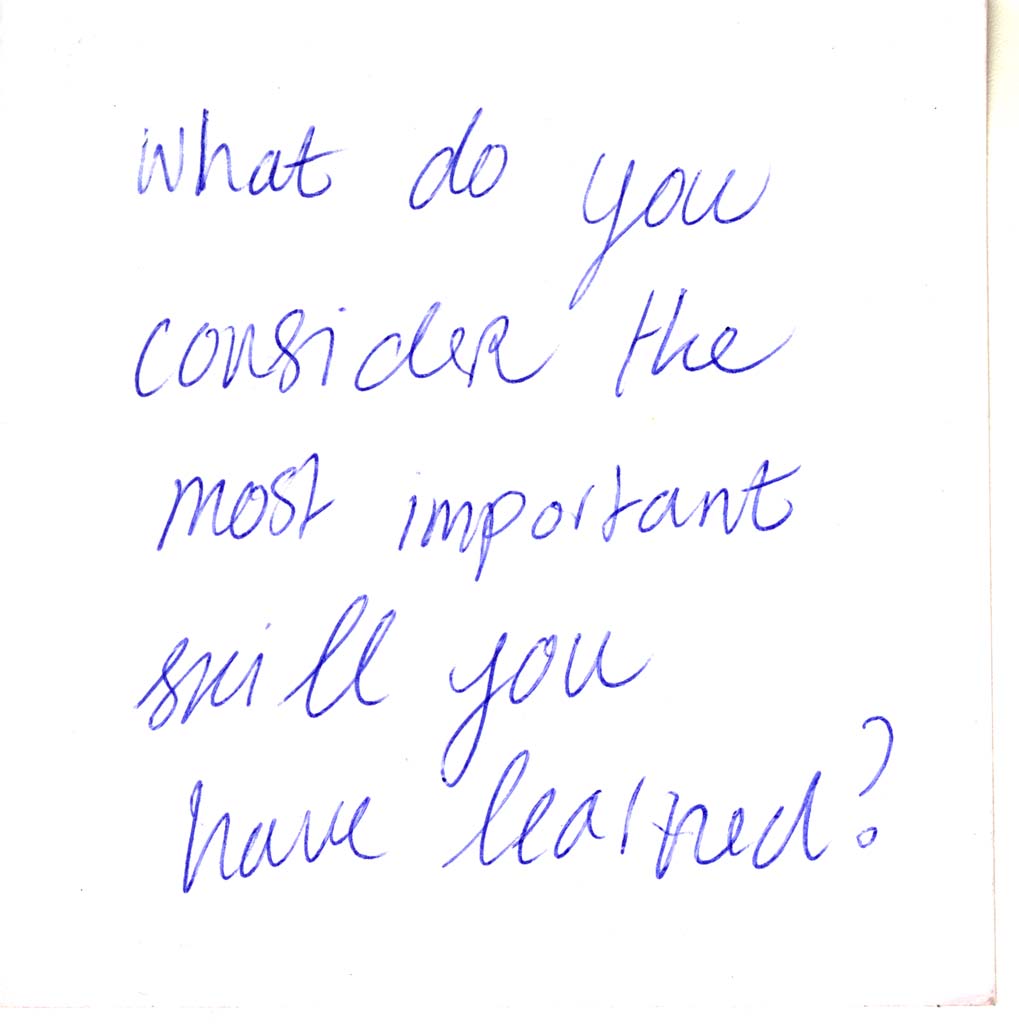 What do you
consider the
most important
skill you
have learned?